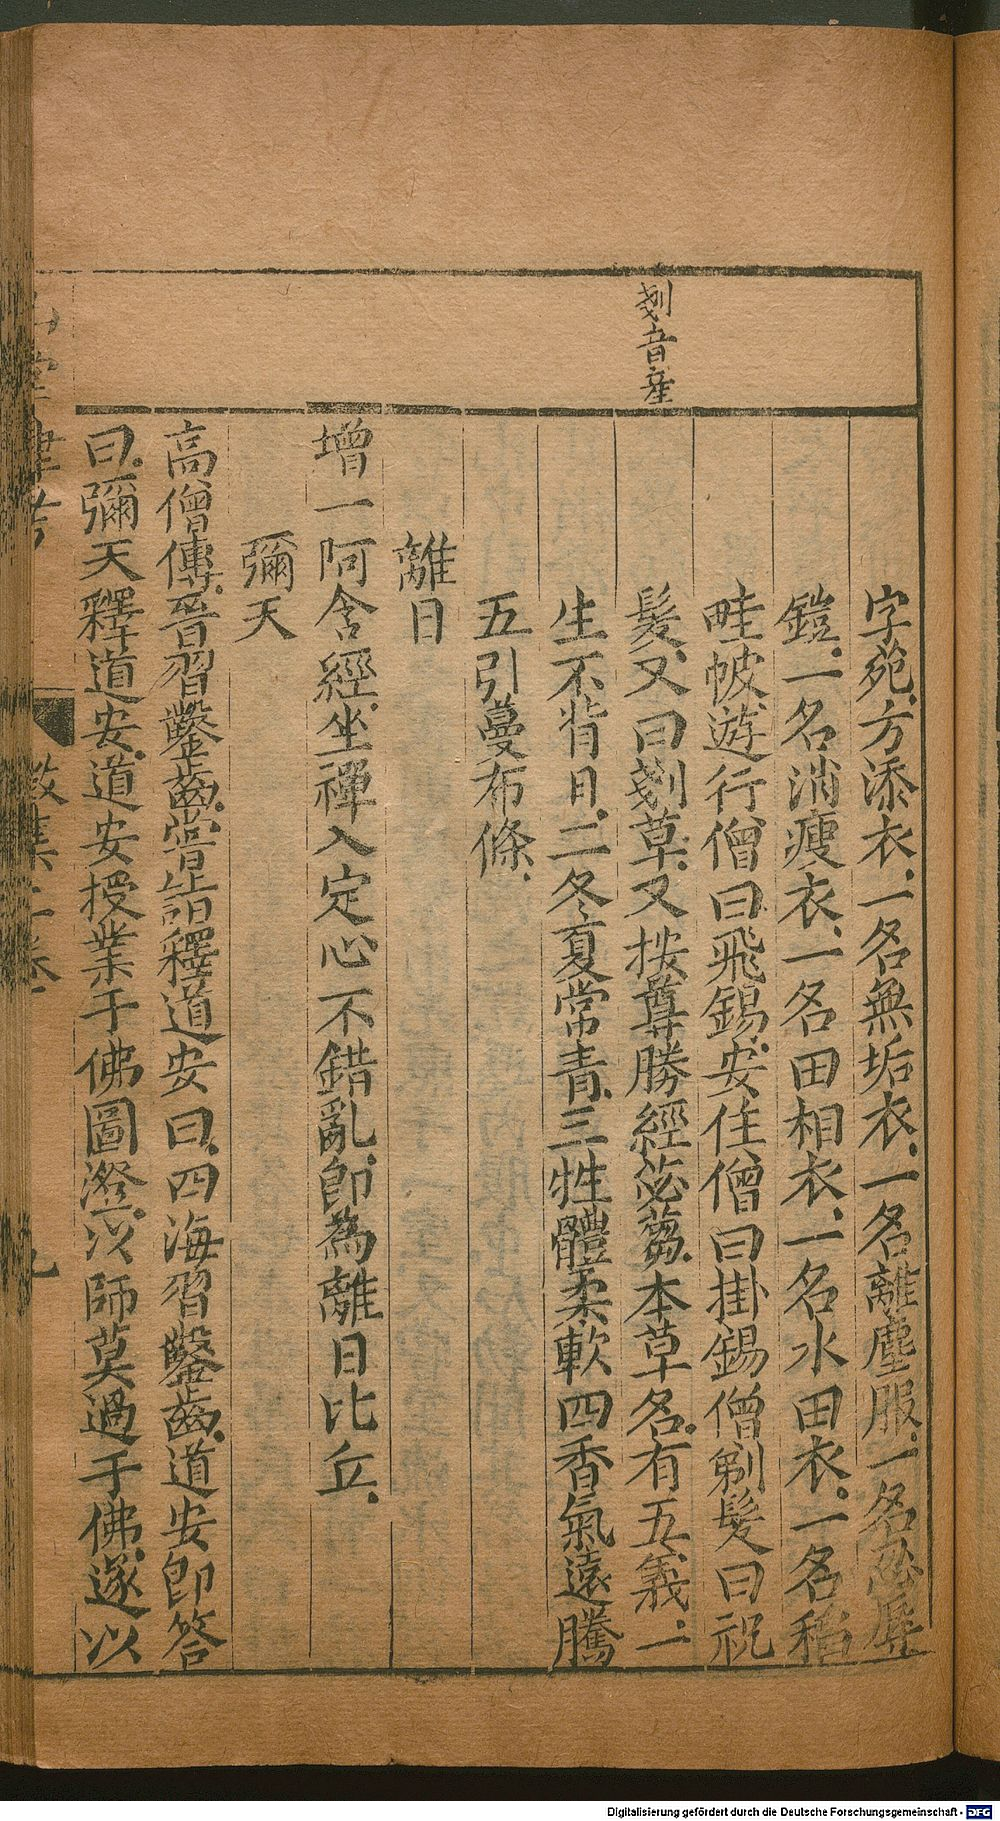 剗音産
字苑方添衣一名無垢衣一名離塵服一名忍辱
鎧一名消瘦衣一名田相衣一名水田衣一名稻
畦帔遊行僧曰飛錫安住僧曰掛錫僧剃髮曰祝
髮又曰剗草又按尊勝經苾蒭本草名有五義一
生不背日二冬夏常青三性體柔軟四香氣遠騰
五引蔓布條
離日
增一阿含經坐禪入定心不錯亂即為離日比丘
彌天
高僧傳晉習鑿齒嘗詣釋道安曰四海習鑿齒道安即答
曰彌天釋道安道安授業于佛圖澄以師莫過于佛遂以
Digitalisierung gefördert durch die Deutsche Forschungsgemeinschaft - DFG